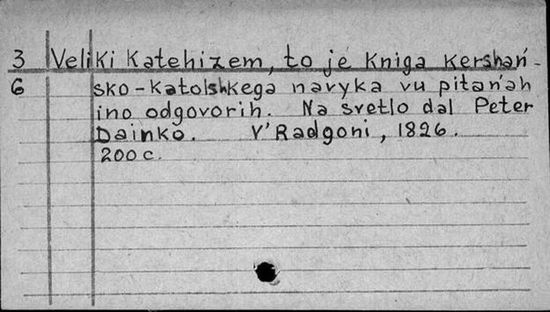 3 Veliki Katehizem, to je kniga kershań-
6 sko-katolshkega navyka vu pitańah
ino odgovorih. Na svetlo dal Peter
Dainko. V'Radgoni, 1826.
200 c.